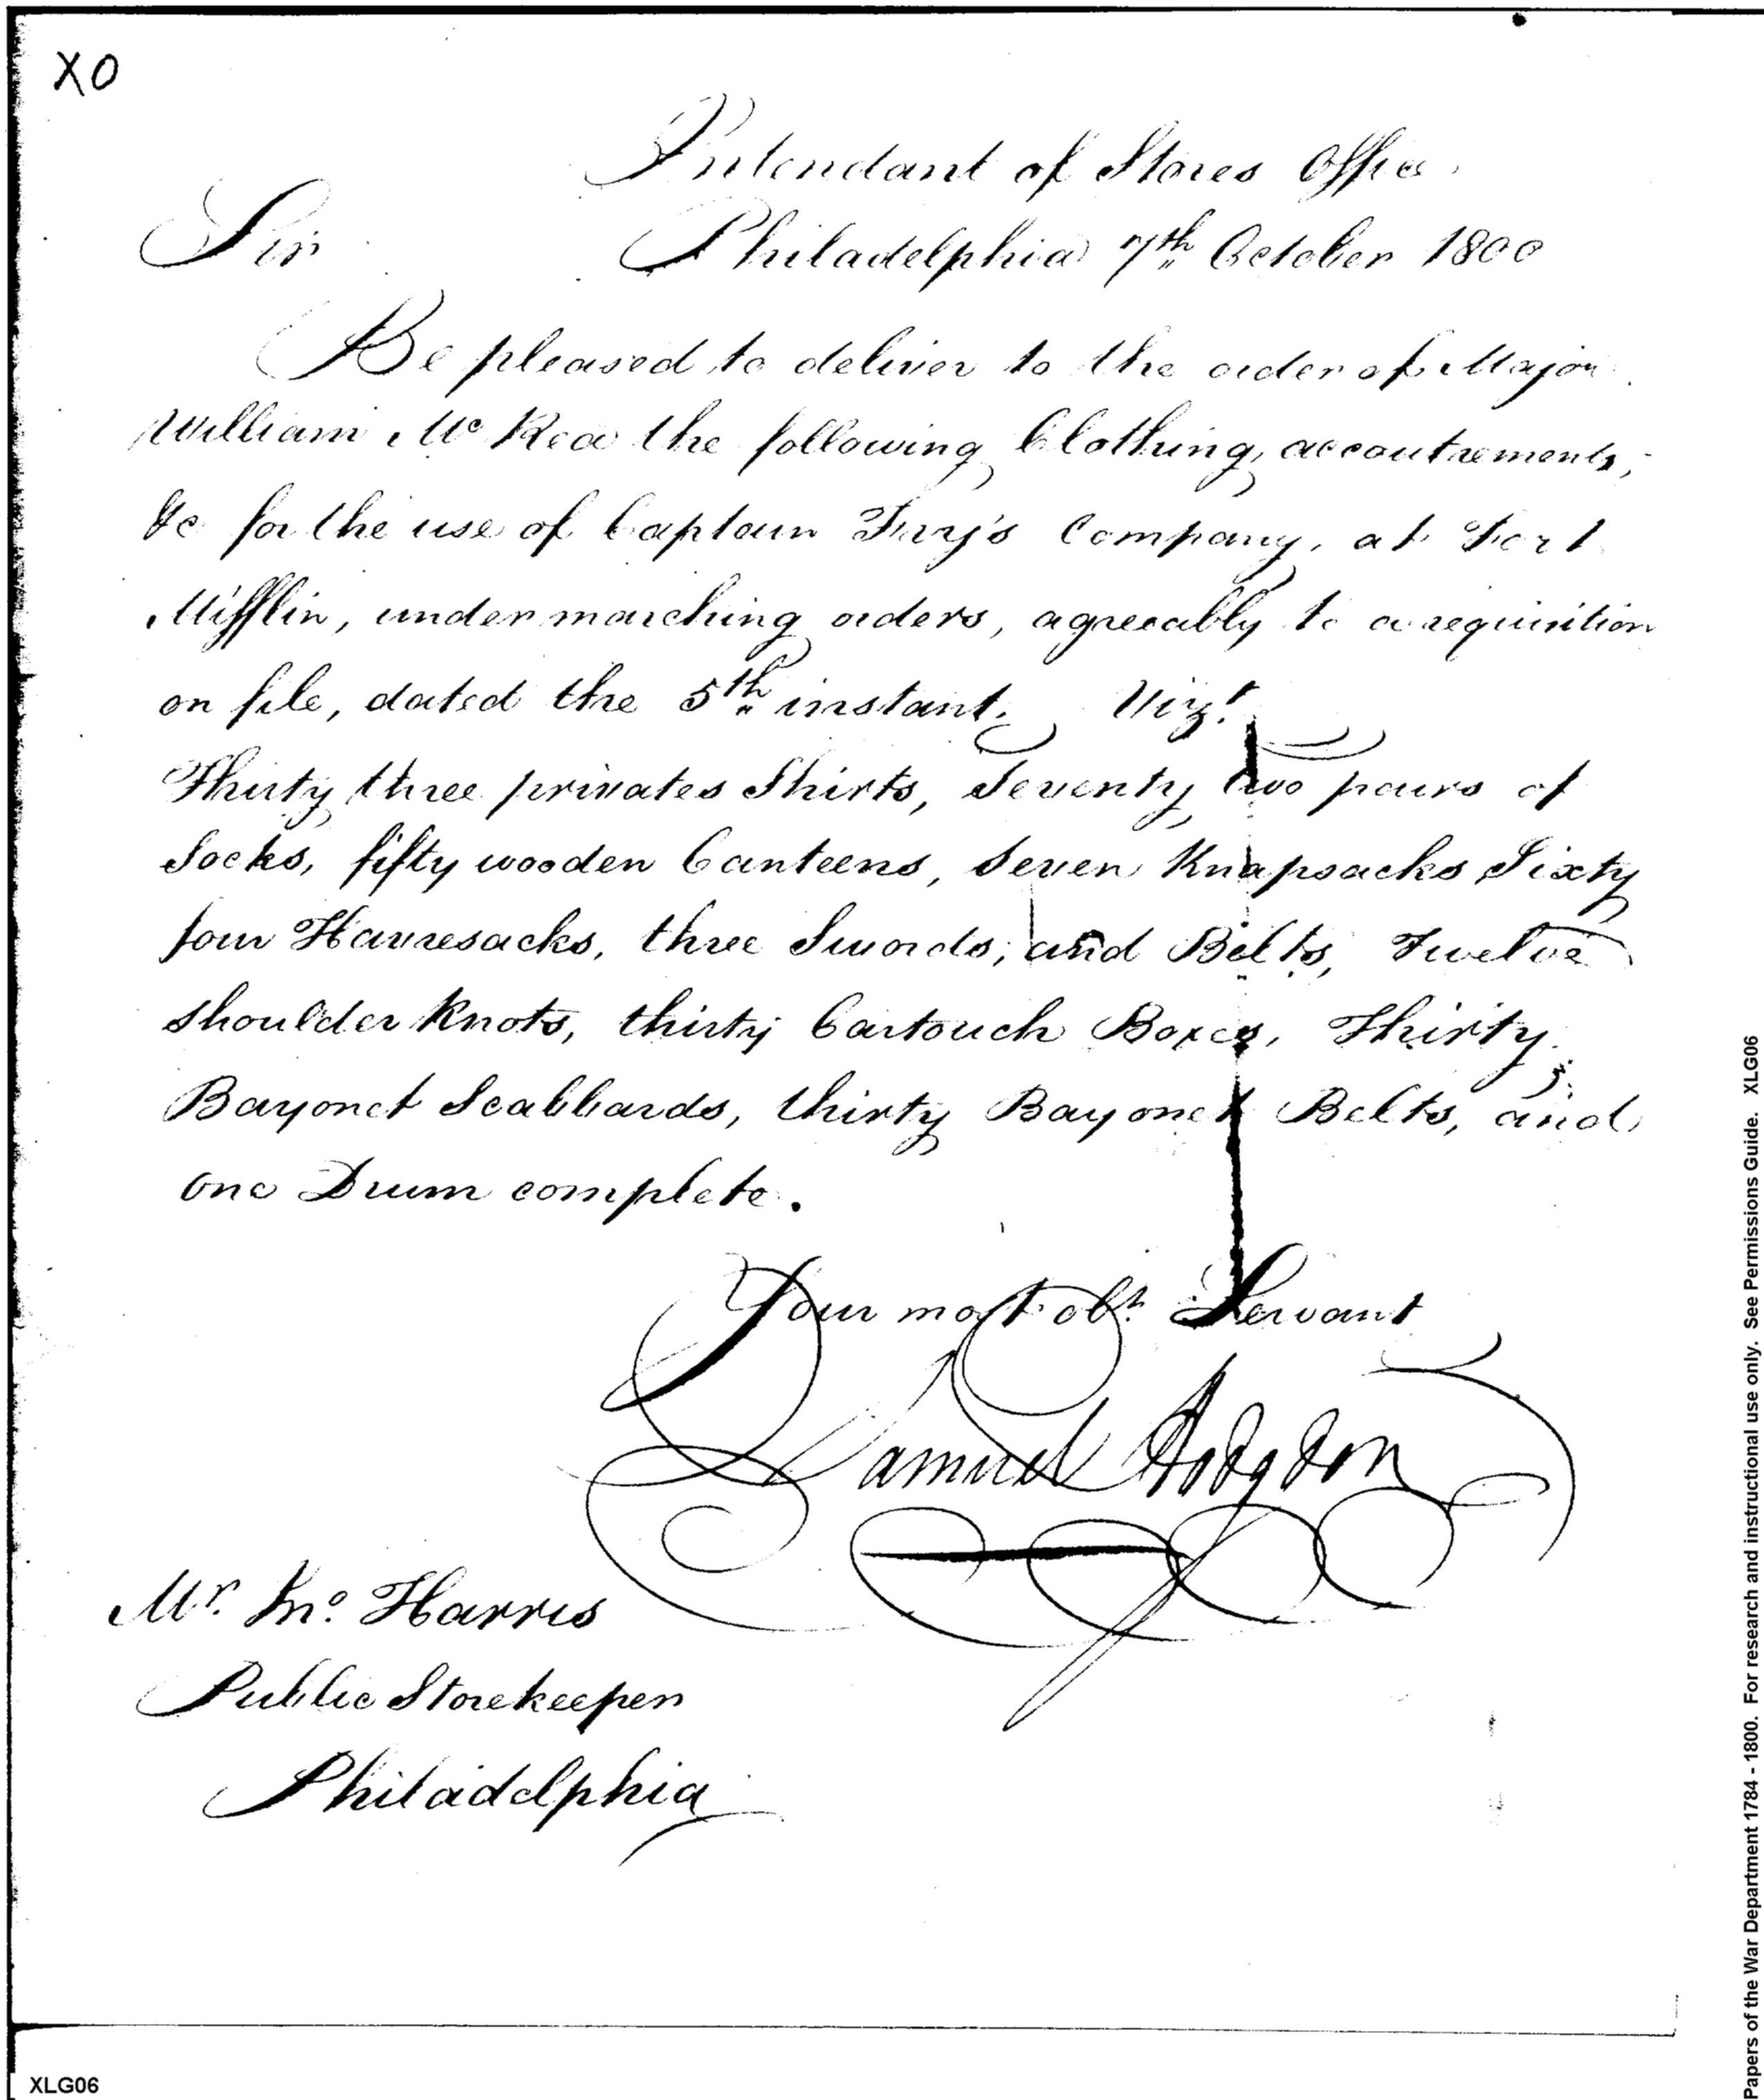 XO
Intendant of Stores Office
Sir Philadelphia 7th October 1800
Be pleased to deliver to the order of Major
William McRea the following Clothing, accoutrements,
&c for the use of Captain Fry's Company, at Fort
Mifflin, under marching orders, agreeably to a requisition
on file, dated the 5th instant. Vizt
Thirty three privates Shirts, Seventy two pairs of
Socks, fifty wooden Canteens, Seven Knapsacks Sixty
four Havresacks, three Swords, and Belts, Twelve
shoulder Knots, thirty Cartouch Boxes, Thirty
Bayonet Scabbards, thirty Bayonet Belts, and
one Drum complete.
Your most obt. Servant
Samuel Hodgdon
Mr. Jno. Harris
Public Storekeeper
Philadelphia
XLG06
Papers of the War Department 1784 - 1800. For research and instructional use only. See Permissions Guide. XLG06